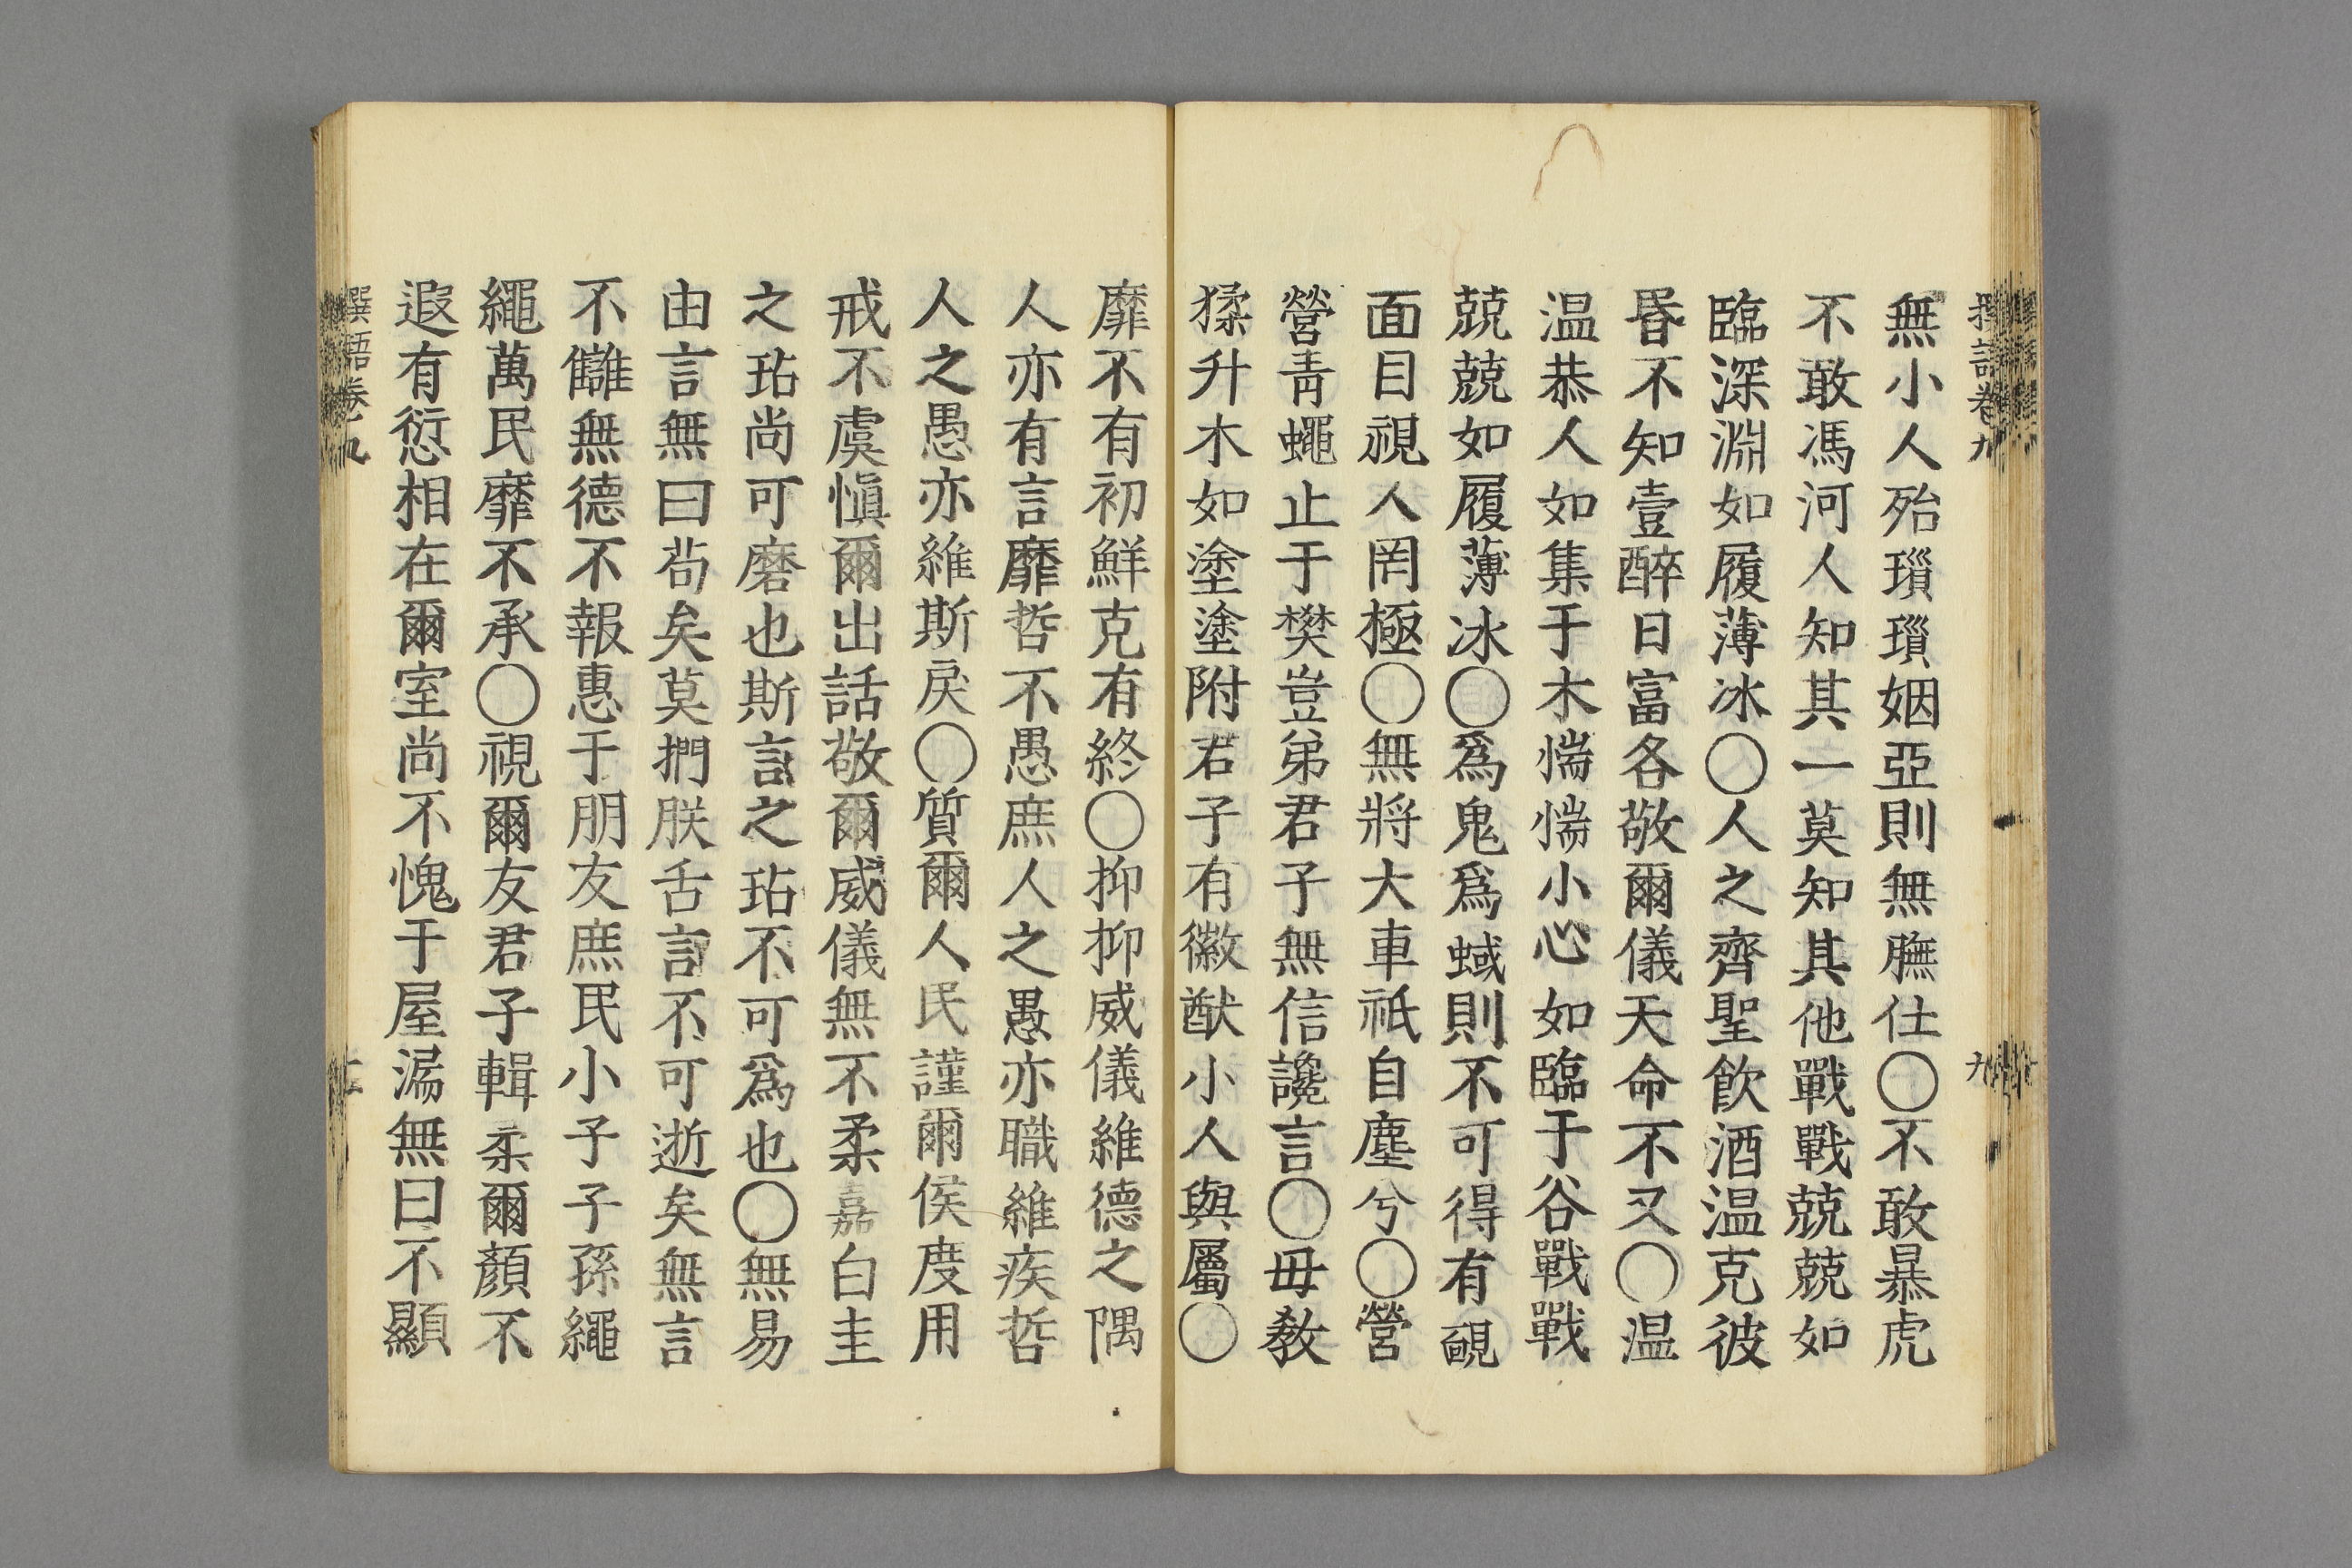 無小人殆瑣瑣姻亞則無膴仕〇不敢暴虎
不敢馮河人知其一莫知其他戰戰兢兢如
臨深淵如履薄冰〇人之齊聖飲酒温克彼
昬不知壹醉日富各敬爾儀天命不又〇温
温恭人如集于木惴惴小心如臨于谷戰戰
兢兢如履薄冰〇爲鬼爲蜮則不可得有靦
面目視人罔極〇無將大車祇自塵兮〇營
營靑蠅止于樊豈弟君子無信讒言〇毋敎
猱升木如塗塗附君子有徽猷小人與屬〇
靡不有初鮮克有終〇抑抑威儀維德之隅
人亦有言靡哲不愚庶人之愚亦職維疾哲
人之愚亦維斯戾〇質爾人民謹爾侯度用
戒不虞愼爾出話敬爾威儀無不柔嘉白圭
之玷尚可磨也斯言之玷不可爲也〇無易
由言無曰苟矣莫捫朕舌言不可逝矣無言
不讎無德不報惠于朋友庶民小子子孫繩
繩萬民靡不承〇視爾友君子輯柔爾顏不
遐有愆相在爾室尚不愧于屋漏無曰不顯